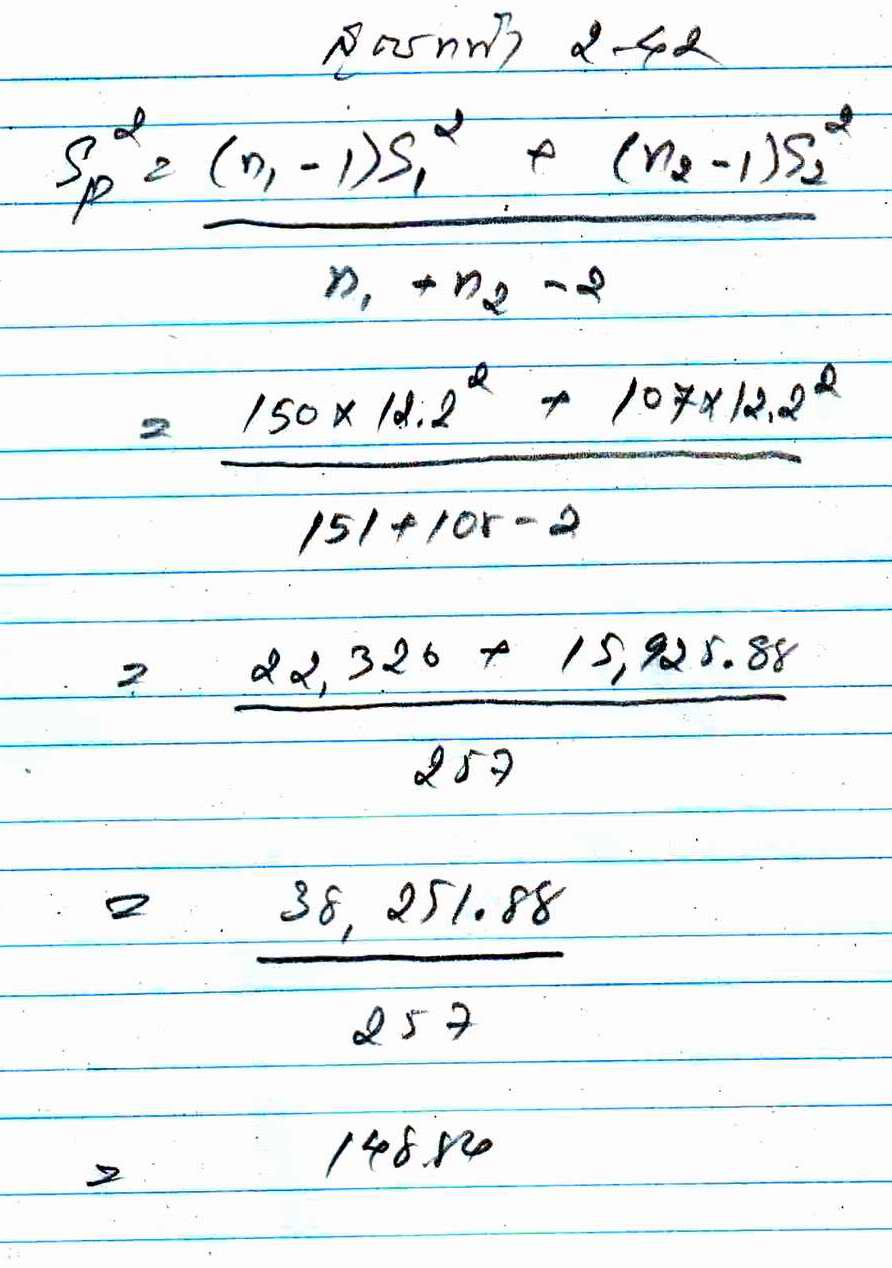 สูตรหน้า 2-42
Sp² = (n₁ - 1)S₁² + (n₂ - 1)S₂²
n₁ + n₂ - 2
= 150 x 12.2² + 107 x 12.2²
151 + 108 - 2
= 22,326 + 15,925.88
257
= 38,251.88
257
= 148.84